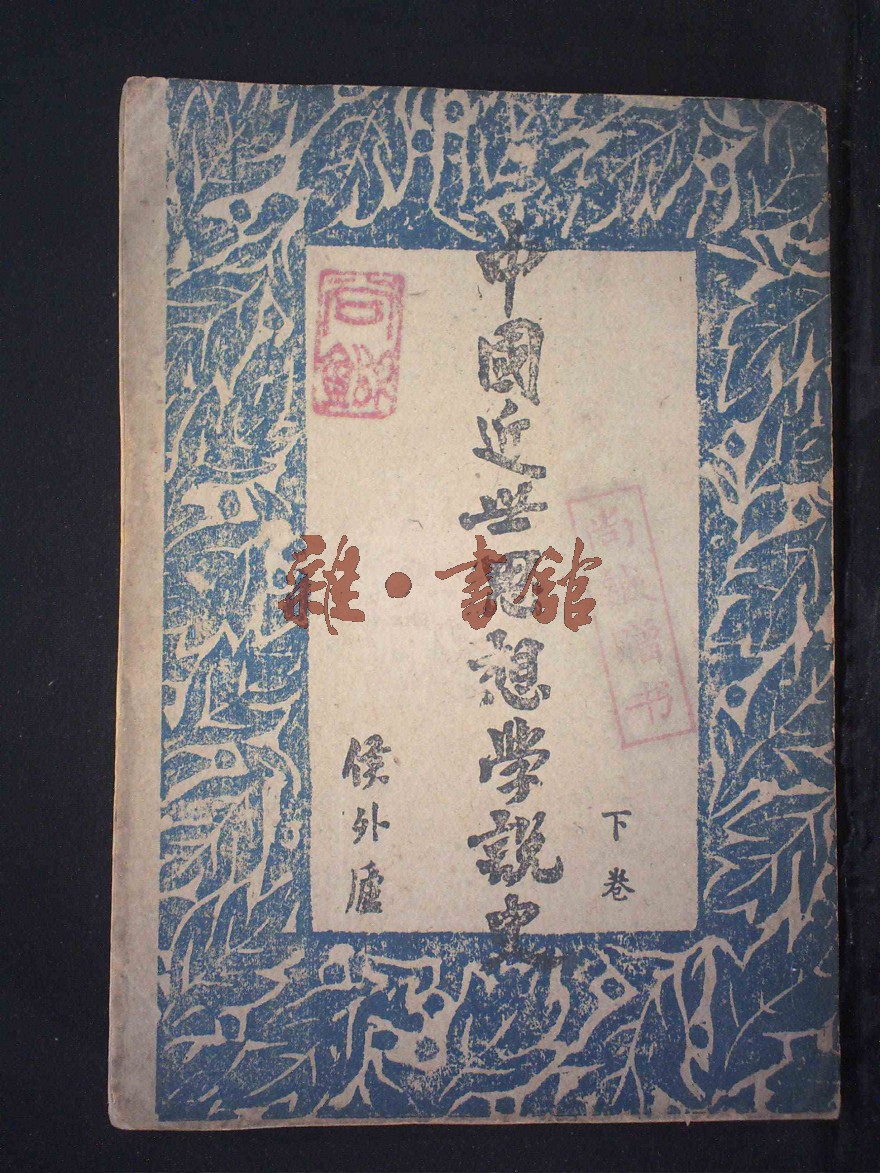 中國近世思想學說史
下卷
侯外廬
尚鉞
尚鉞赠书
雜·書舘